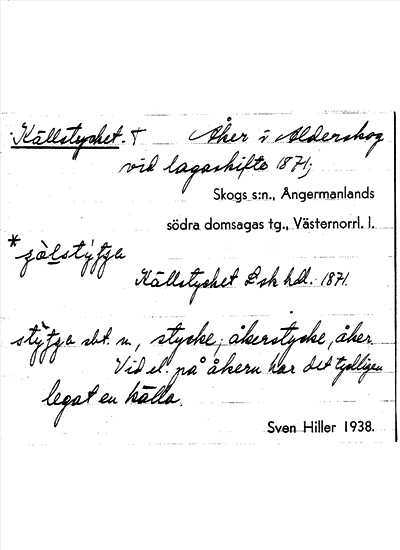 Källstycket. † Åker i Alderskog
vid lagaskifte 1871;
Skogs s:n., Ångermanlands
södra domsagas tg., Västernorrl. l.
*
Källstycket Lsk hdl. 1871.
sbt. n, stycke; åkerstycke, åker.
Vid el. på åkern har det tydligen
legat en källa.
Sven Hiller 1938.